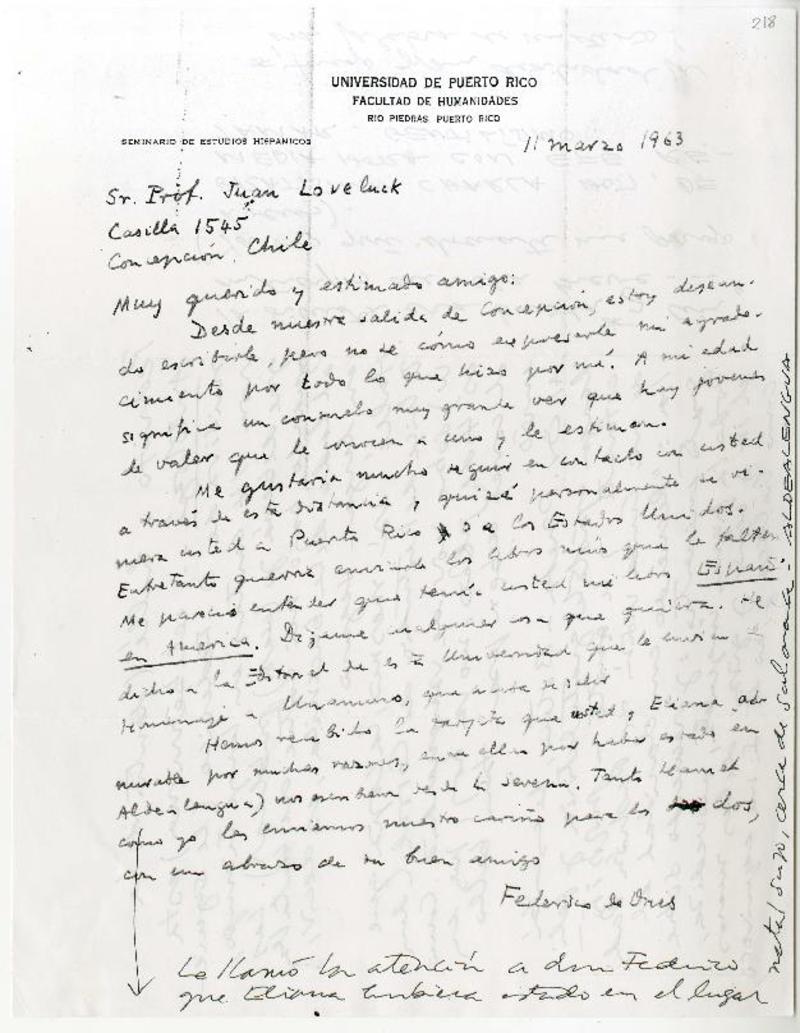 218
UNIVERSIDAD DE PUERTO RICO
FACULTAD DE HUMANIDADES
RIO PIEDRAS, PUERTO RICO
SEMINARIO DE ESTUDIOS HISPANICOS
11 marzo 1963
Sr. Prof. Juan Loveluck
Casilla 1545
Concepción, Chile
Muy querido y estimado amigo:
Desde nuestra salida de Concepción, estoy desean-
do escribirle, pero no se cómo expresarle mi agrade-
cimiento por todo lo que hizo por mí. A mi edad
significa un consuelo muy grande ver que hay jovenes
de valer que le conocen a uno y le estiman.
Me gustaria mucho seguir en contacto con usted
a través de esta distancia, y quizá personalmente si vi-
niera usted a Puerto Rico o a los Estados Unidos.
Entretanto querria enviarle los libros mios que le falten
Me pareció entender que tenía usted mi libro España
en America. Digame cualquier cosa que quiera. He
dicho a la Editorial de esta Universidad que le envien el
Homenaje a Unamuno, que acaba de salir
Hemos recibido la tarjeta que usted y Eliana (ad-
mirable por muchas razones, entre ellas por haber estado en
Aldealengua) nos escribieron desde la Serena. Tanto Harriet
como yo les enviamos nuestro cariño para los dos,
con un abrazo de su buen amigo
Federico de Onís
Le llamó la atención a don Federico
que Eliana hubiera estado en el lugar
natal suyo, cerca de Salamanca: ALDEALENGUA